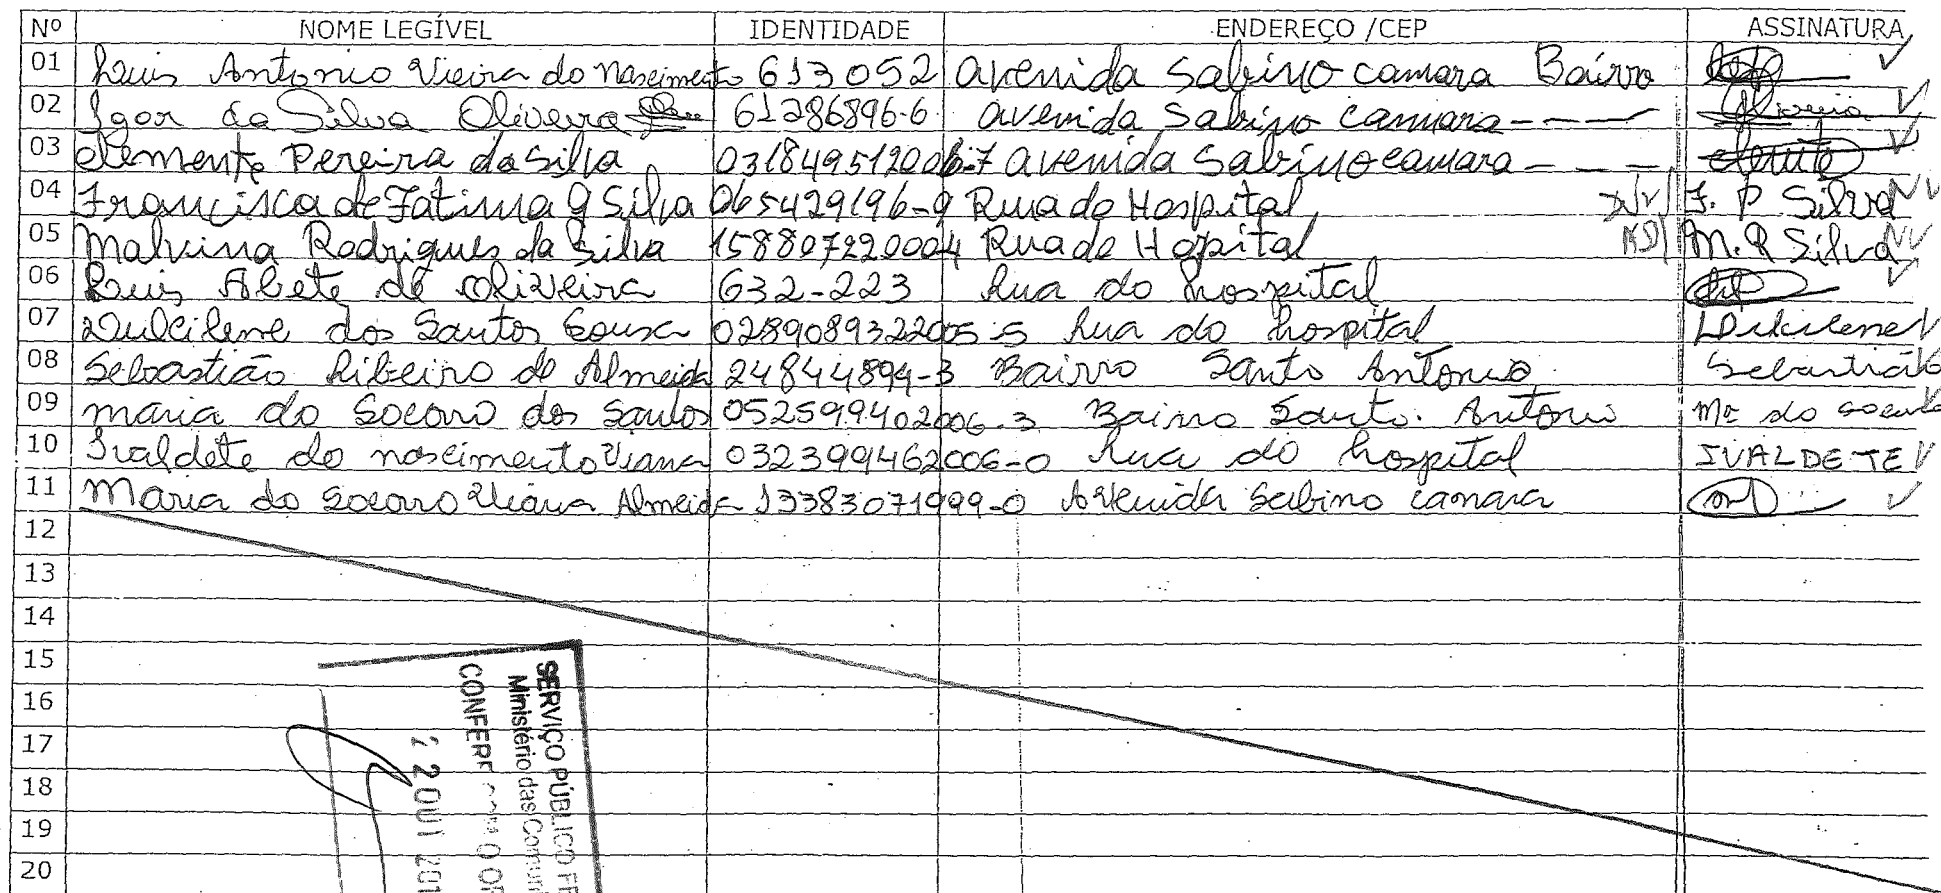 Nº NOME LEGÍVEL IDENTIDADE ENDEREÇO /CEP ASSINATURA
01 Luis Antonio Vieira do nascimento 613052 avenida Sabino camara Bairro
02 Igor da Silva Oliveira 61286896-6 avenida Sabino camara - - -
03 clemente Pereira da Silva 031849512006-7 avenida Sabino camara - - - clemte
04 Francisca de Fatima G Silva 065429196-9 Rua do Hospital F. P Silva
05 Malvina Rodrigues da Silva 158807220004 Rua do Hopital M. R Silva
06 Luis Abete de Oliveira 632-223 Rua do hospital
07 Dulcilene dos Santos Sousa 0289089322005-5 Rua do hospital Dulcilene
08 Sebastião Ribeiro de Almeida 24844894-3 Bairro Santo Antonio Sebastião
09 maria do Socorro dos Santos 052599402006-3 Bairro Santo. Antonio Mª do Socorro
10 Ivaldete do nascimento Viana 032399462006-0 Rua do hospital IVALDETE
11 Maria do Socorro Viana Almeida 13383071999-0 Avenida Sabino camara
12
13
14
15
16
17
18
19
20
SERVIÇO PÚBLICO FE
Ministério das Comuni
CONFERE O OR
22 OUT 201